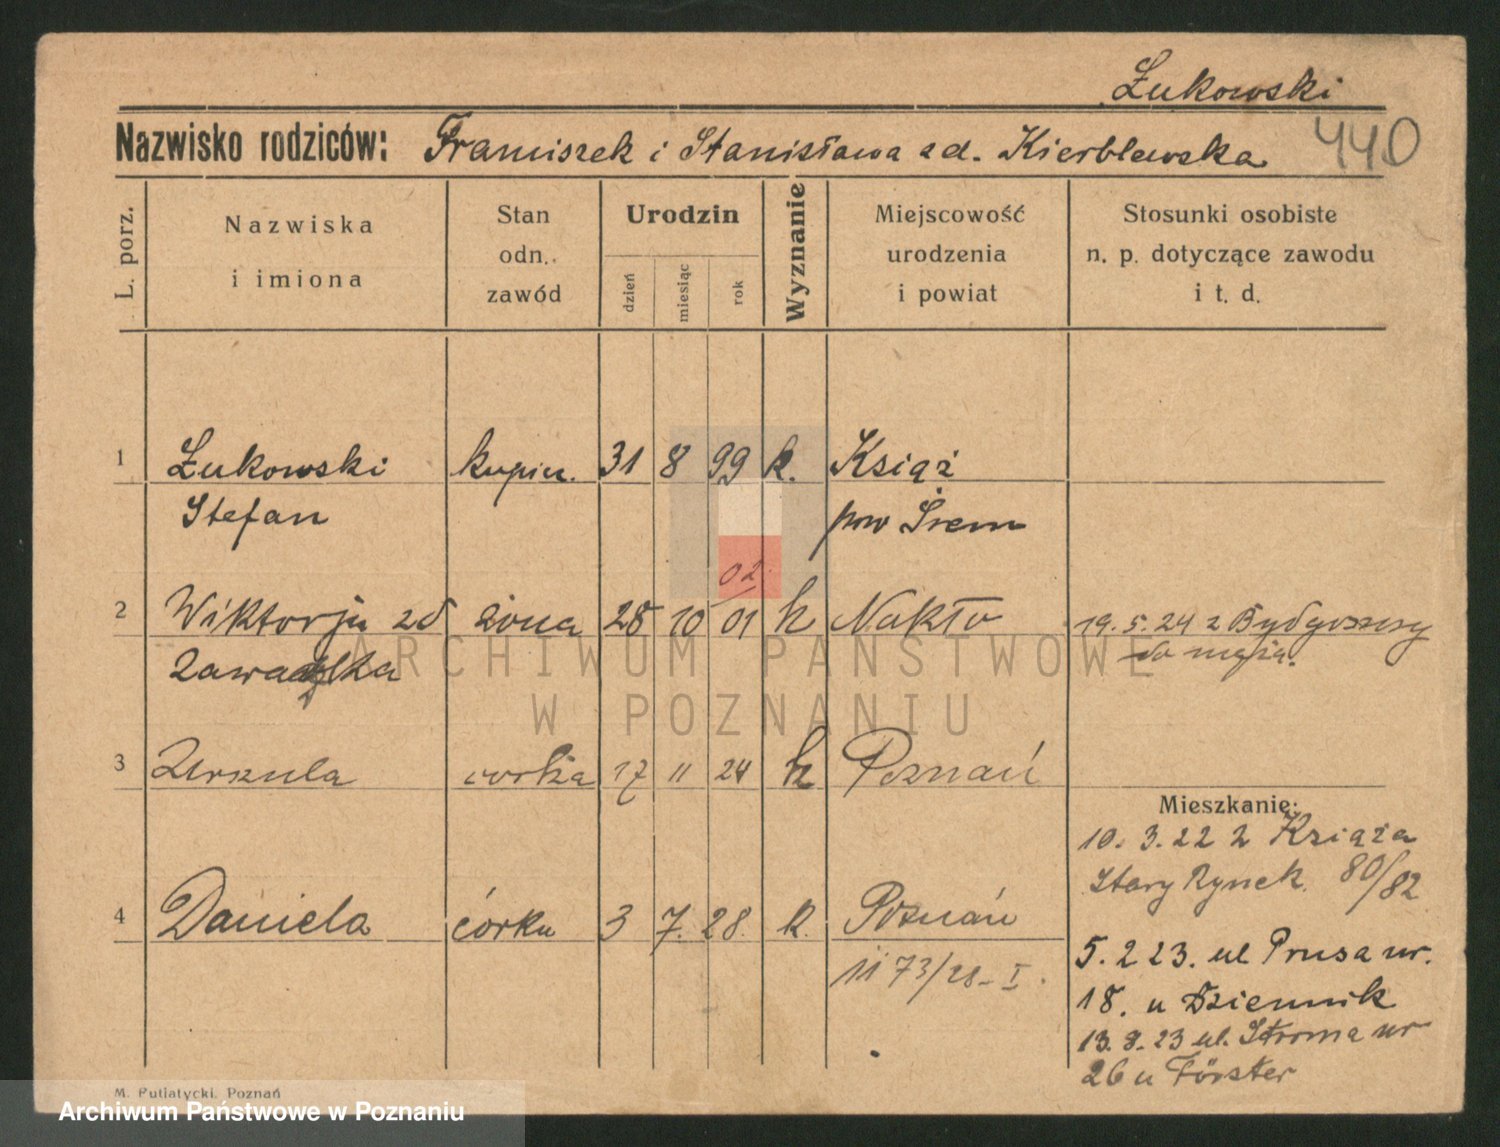 Żukowski
Nazwisko rodziców: Franciszek i Stanisława zd. Kierblewska
440
L. porz.
Nazwiska
i imiona
Stan
odn.
zawód
Urodzin
dzień
miesiąc
rok
Wyznanie
Miejscowość
urodzenia
i powiat
Stosunki osobiste
n. p. dotyczące zawodu
i t. d.
1 Żukowski kupiec. 31 8 99 k. Książ
Stefan pow Śrem
02
2 Wiktorja zd żona 28 10 01 k Nakło 19.5.24 z Bydgoszczy
Zawadzka do męża.
3 Urszula corka 17 11 24 k Poznań
Mieszkanie:
10. 3. 22 z Książa
Stary Rynek 80/82
4 Daniela córka 3 7. 28. k. Poznań
1173/28 - I.
5. 2 23. ul Prusa nr.
18. u Dziennik
13. 8. 23 ul. Stroma nr
26 u Förster
M. Putiatycki. Poznań
ARCHIWUM PAŃSTWOWE
W POZNANIU
Archiwum Państwowe w Poznaniu